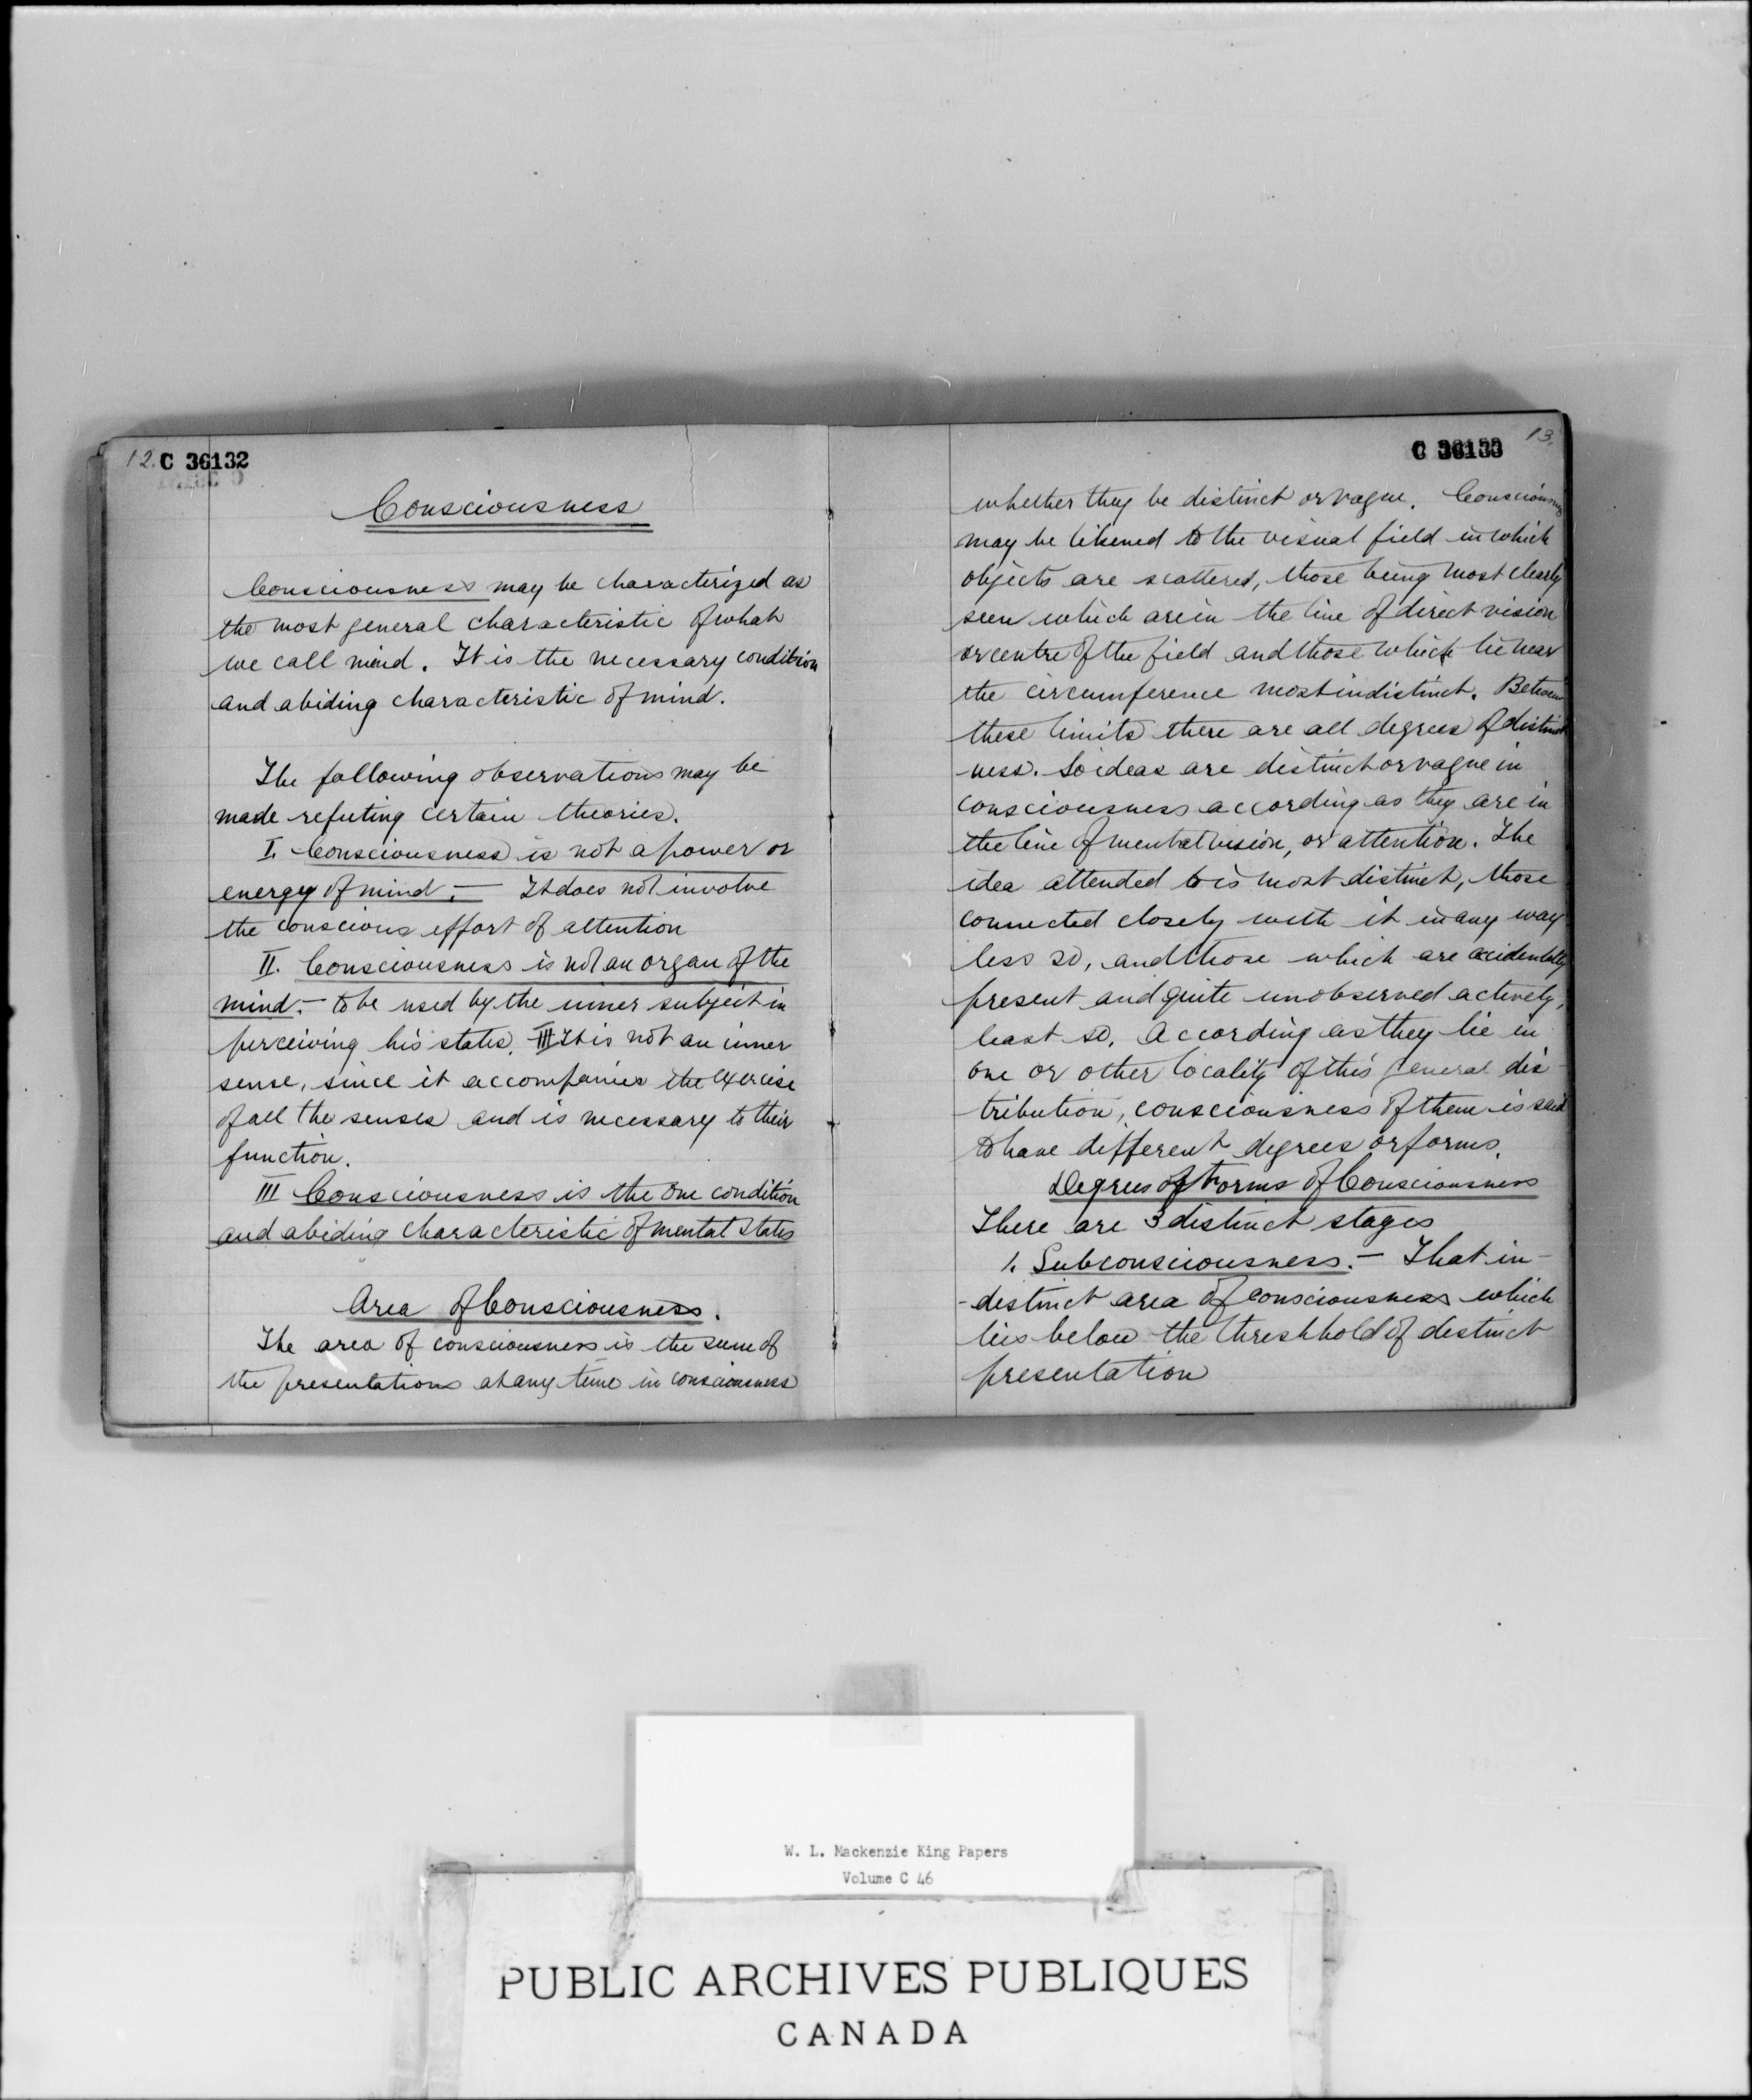 12. C 36132
Consciousness
Consciousness may be characterized as
the most general characteristic of what
we call mind. It is the necessary condition
and abiding characteristic of mind.
The following observations may be
made refuting certain theories.
I. Consciousness is not a power or
energy of mind. — It does not involve
the conscious effort of attention
II. Consciousness is not an organ of the
mind. — to be used by the inner subject in
perceiving his states. III It is not an inner
sense, since it accompanies the exercise
of all the senses and is necessary to their
function.
III Consciousness is the one condition
and abiding characteristic of mental states
Area of Consciousness.
The area of consciousness is the sum of
the presentations at any time in consciousness
C 36133 13.
whether they be distinct or vague. Consciousness
may be likened to the visual field in which
objects are scattered, those being most clearly
seen which are in the line of direct vision
or centre of the field and those which lie near
the circumference most indistinct. Between
these limits there are all degrees of distinct
ness. So ideas are distinct or vague in
consciousness according as they are in
the line of mental vision, or attention. The
idea attended to is most distinct, those
connected closely with it in any way
less so, and those which are accidentally
present and quite unobserved actively,
least so. According as they lie in
one or other locality of this general dis
tribution, consciousness of them is said
to have different degrees or forms.
Degrees of Forms of Consciousness
There are 3 distinct stages
1. Subconsciousness. — That in-
-distinct area of consciousness which
lies below the threshhold of distinct
presentation
W. L. Mackenzie King Papers
Volume C 46
PUBLIC ARCHIVES PUBLIQUES
CANADA